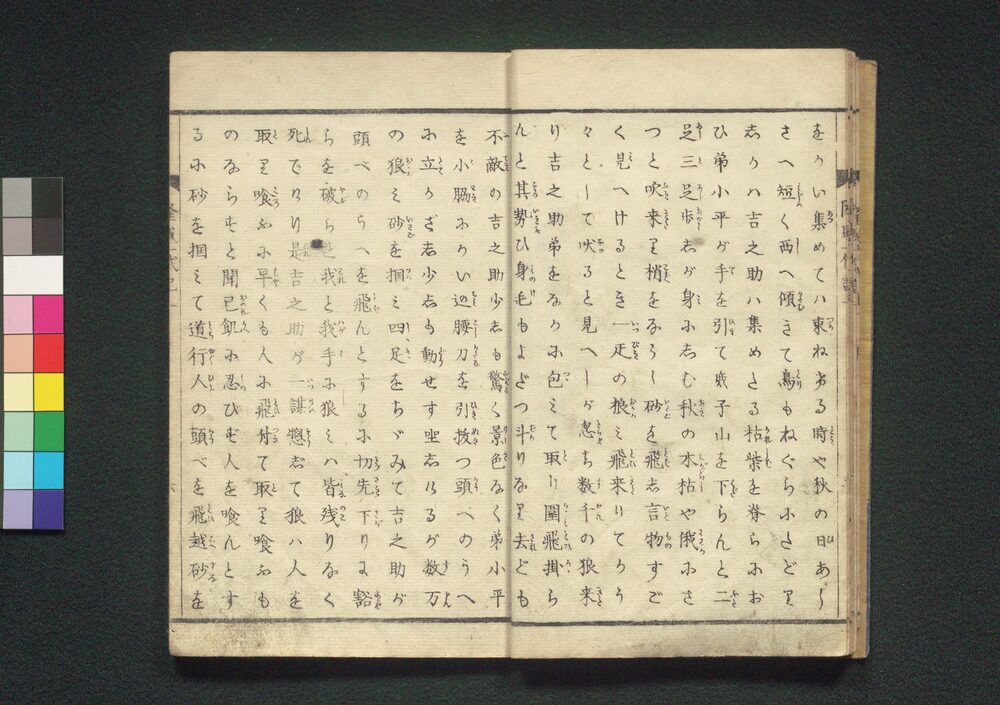 をかい集めてハ束ねある時や秋の日あし
さへ短く西へ傾きて鳥もねぐらにたどり
しかハ吉之助ハ集めたる枯柴を脊らにお
ひ弟小平が手を引て我子山を下らんと二
足三足歩しが身にしむ秋の木枯や俄にさ
つと吹来り梢をならし砂を飛し言物すご
く見へけるとき一疋の狼ミ飛来りてうう
々として吠ると見へしが忽ち数千の狼来
り吉之助弟をなかに包ミて取り圍飛掛ら
んと其勢ひ身毛もよだつ斗りなり去ども
不敵の吉之助少しも驚く景色なく弟小平
を小脇にかい込腰刀を引抜つ頭べのうへ
に立かざし少しも動せす坐しけるが数万
の狼ミ砂を掴ミ四足をちゞみて吉之助が
頭べのうへを飛んとするに切先下りに豁
らを破られ我と我手に狼ミハ皆残りなく
死でけり是吉之助が一謀惣して狼ハ人を
取り喰ふに早くも人に飛付て取り喰ふも
のならずと聞已飢に忍びず人を喰んとす
るに砂を掴ミて道行人の頭べを飛越砂を